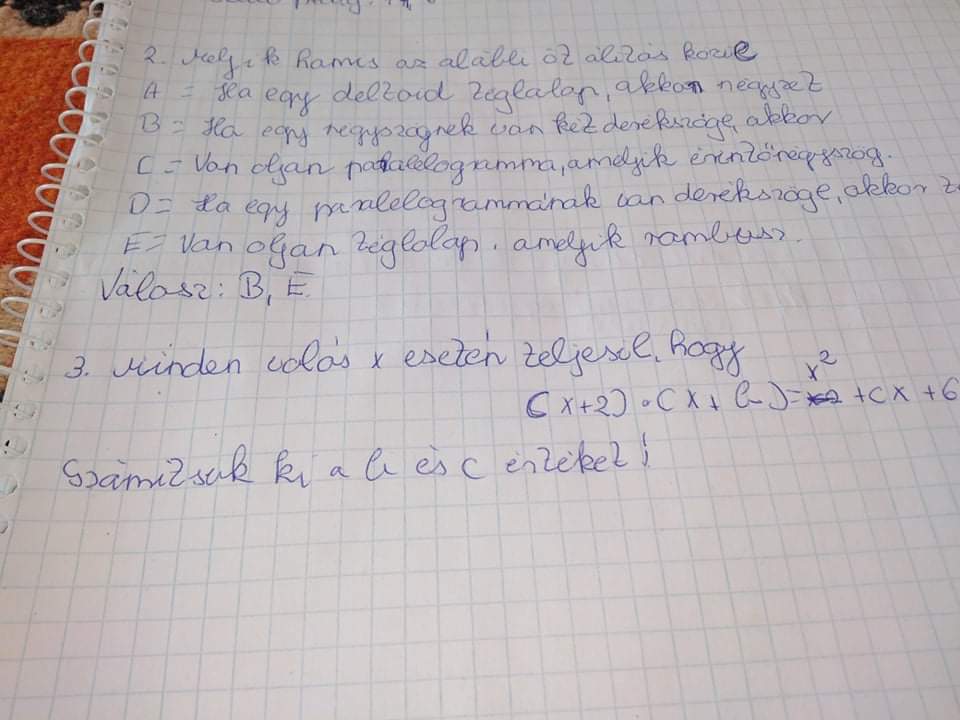 2. Melyik hamis az alábbi öt álitás közül
A = Ha egy deltoid téglalap, akkor négyzet
B = Ha egy négyszögnek van két derékszöge, akkor
C = Van oljan paralelogramma, amelyik érintőnégyszög.
D = Ha egy paralelogrammának van derékszöge, akkor
E = Van oljan téglalap. amelyik rombusz.
Válasz: B, E
3. Minden valós x esetén teljesül, hogy
(x+2)•(x+b)=x² +cx+6
Számitsuk ki a b és c értékét!